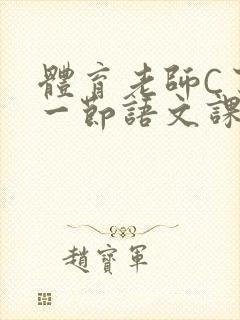 體育老師C
一節語文課
趙寶軍